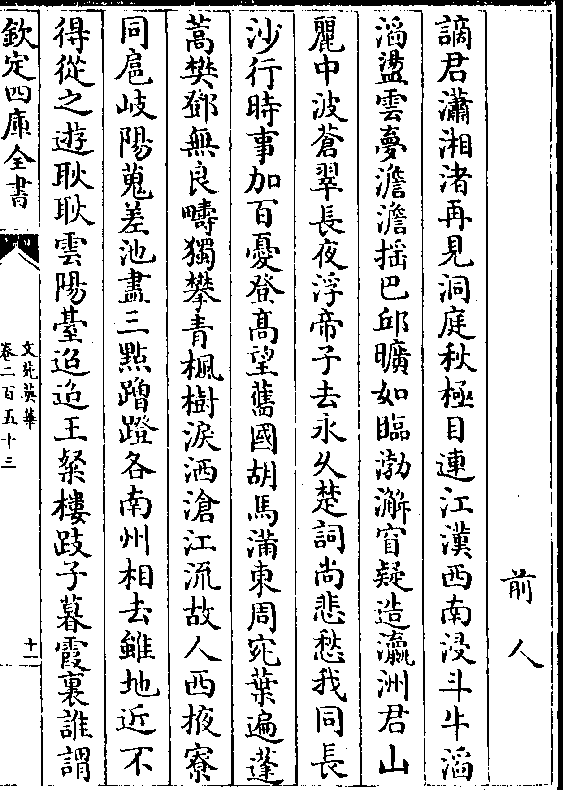 前人
謫君瀟湘渚再見洞庭秋極目連江漢西南浸斗牛滔
滔盪雲夢澹澹揺巴邱曠如臨渤澥窅疑造瀛洲君山
麗中波蒼翠長夜浮帝子去永久楚詞尚悲愁我同長
沙行時事加百憂登髙望舊國胡馬滿東周宛葉遍蓬
蒿樊鄧無良疇獨攀青楓樹淚洒滄江流故人西掖寮
同扈岐陽蒐差池盡三點蹭蹬各南州相去雖地近不
得從之遊耿耿雲陽臺迢迢王粲樓跂子暮霞裏誰謂
欽定四庫全書
文苑英華
卷二百五十三
十一